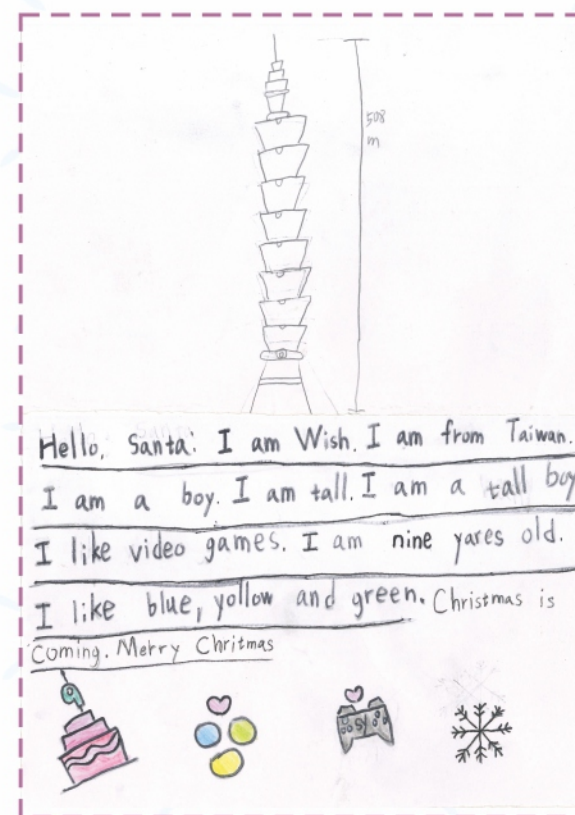 508
m
Hello, Santa: I am Wish. I am from Taiwan.
I am a boy. I am tall. I am a tall boy
I like video games. I am nine yares old.
I like blue, yollow and green. Christmas is
Coming. Merry Chritmas
9